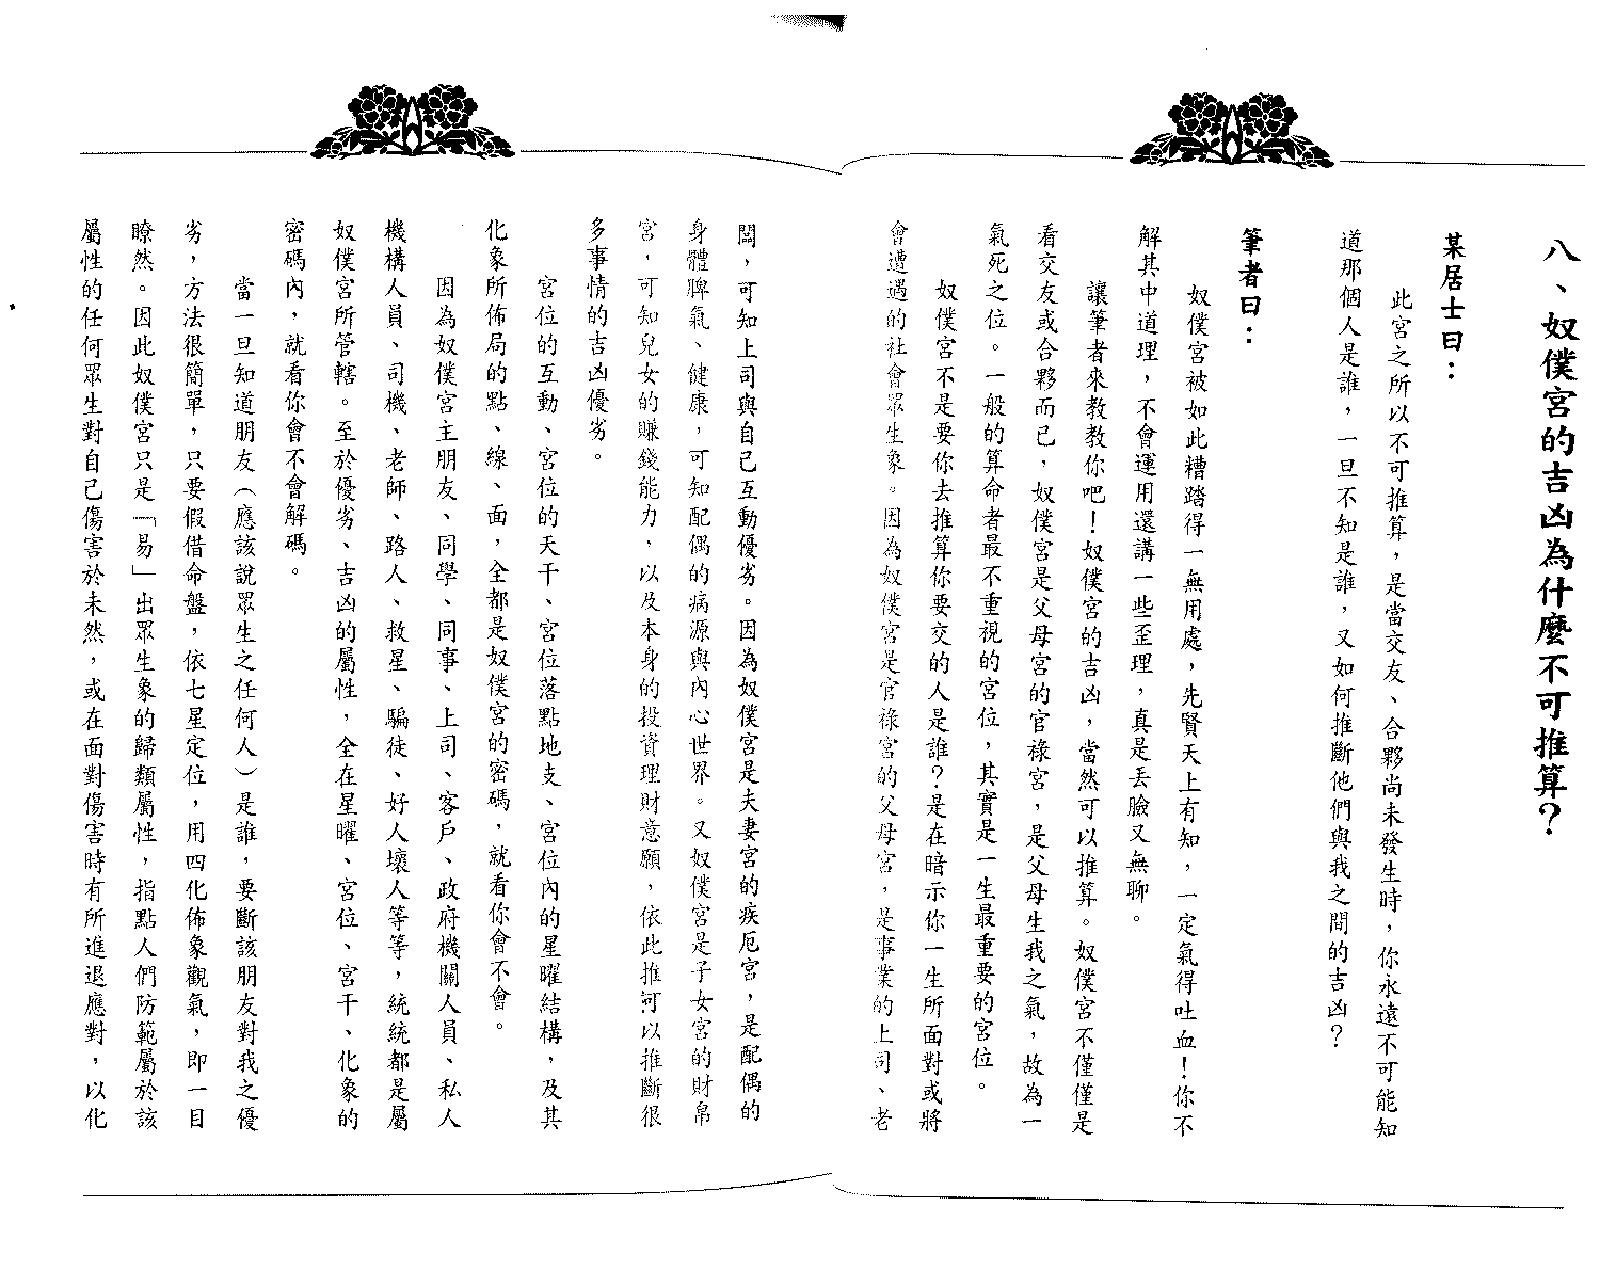 八、奴僕宮的吉凶為什麼不可推算？
某居士曰：
此宮之所以不可推算，是當交友、合夥尚未發生時，你永遠不可能知
道那個人是誰，一旦不知是誰，又如何推斷他們與我之間的吉凶？
筆者曰：
奴僕宮被如此糟踏得一無用處，先賢天上有知，一定氣得吐血！你不
解其中道理，不會運用還講一些歪理，真是丟臉又無聊。
讓筆者來教教你吧！奴僕宮的吉凶，當然可以推算。奴僕宮不僅僅是
看交友或合夥而已，奴僕宮是父母宮的官祿宮，是父母生我之氣，故為一
氣死之位。一般的算命者最不重視的宮位，其實是一生最重要的宮位。
奴僕宮不是要你去推算你要交的人是誰？是在暗示你一生所面對或將
會遭遇的社會眾生象。因為奴僕宮是官祿宮的父母宮，是事業的上司、老
闆，可知上司與自己互動優劣。因為奴僕宮是夫妻宮的疾厄宮，是配偶的
身體脾氣、健康，可知配偶的病源與內心世界。又奴僕宮是子女宮的財帛
宮，可知兒女的賺錢能力，以及本身的投資理財意願，依此推可以推斷很
多事情的吉凶優劣。
宮位的互動、宮位的天干、宮位落點地支、宮位內的星曜結構，及其
化象所佈局的點、線、面，全都是奴僕宮的密碼，就看你會不會。
因為奴僕宮主朋友、同學、同事、上司、客戶、政府機關人員、私人
機構人員、司機、老師、路人、救星、騙徒、好人壞人等等，統統都是屬
奴僕宮所管轄。至於優劣、吉凶的屬性，全在星曜、宮位、宮干、化象的
密碼內，就看你會不會解碼。
當一旦知道朋友（應該說眾生之任何人）是誰，要斷該朋友對我之優
劣，方法很簡單，只要假借命盤，依七星定位，用四化佈象觀氣，即一目
瞭然。因此奴僕宮只是「易」出眾生象的歸類屬性，指點人們防範屬於該
屬性的任何眾生對自己傷害於未然，或在面對傷害時有所進退應對，以化